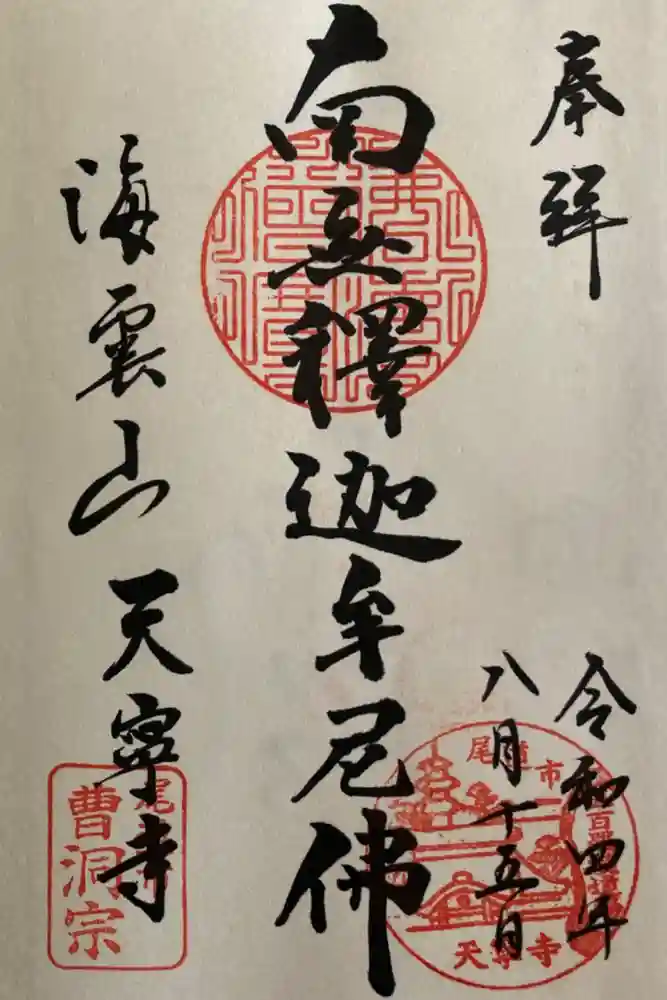 奉拜
令和四年
八月十五日
南無釋迦牟尼佛
海雲山
天寧寺
尾道市
天寧寺
曹洞宗